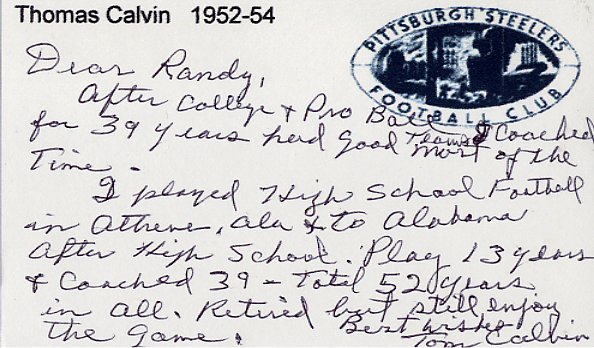 Thomas Calvin 1952-54
PITTSBURGH STEELERS
FOOTBALL CLUB
Dear Randy,
After College & Pro Ball I Coached
for 39 years had good Teams most of the
Time.
I played High School Football
in Athens, Ala & to Alabama
After High School. Play 13 years
& Coached 39 - Total 52 years
in all. Retired but still enjoy
the game. Best wishes
Tom Calvin